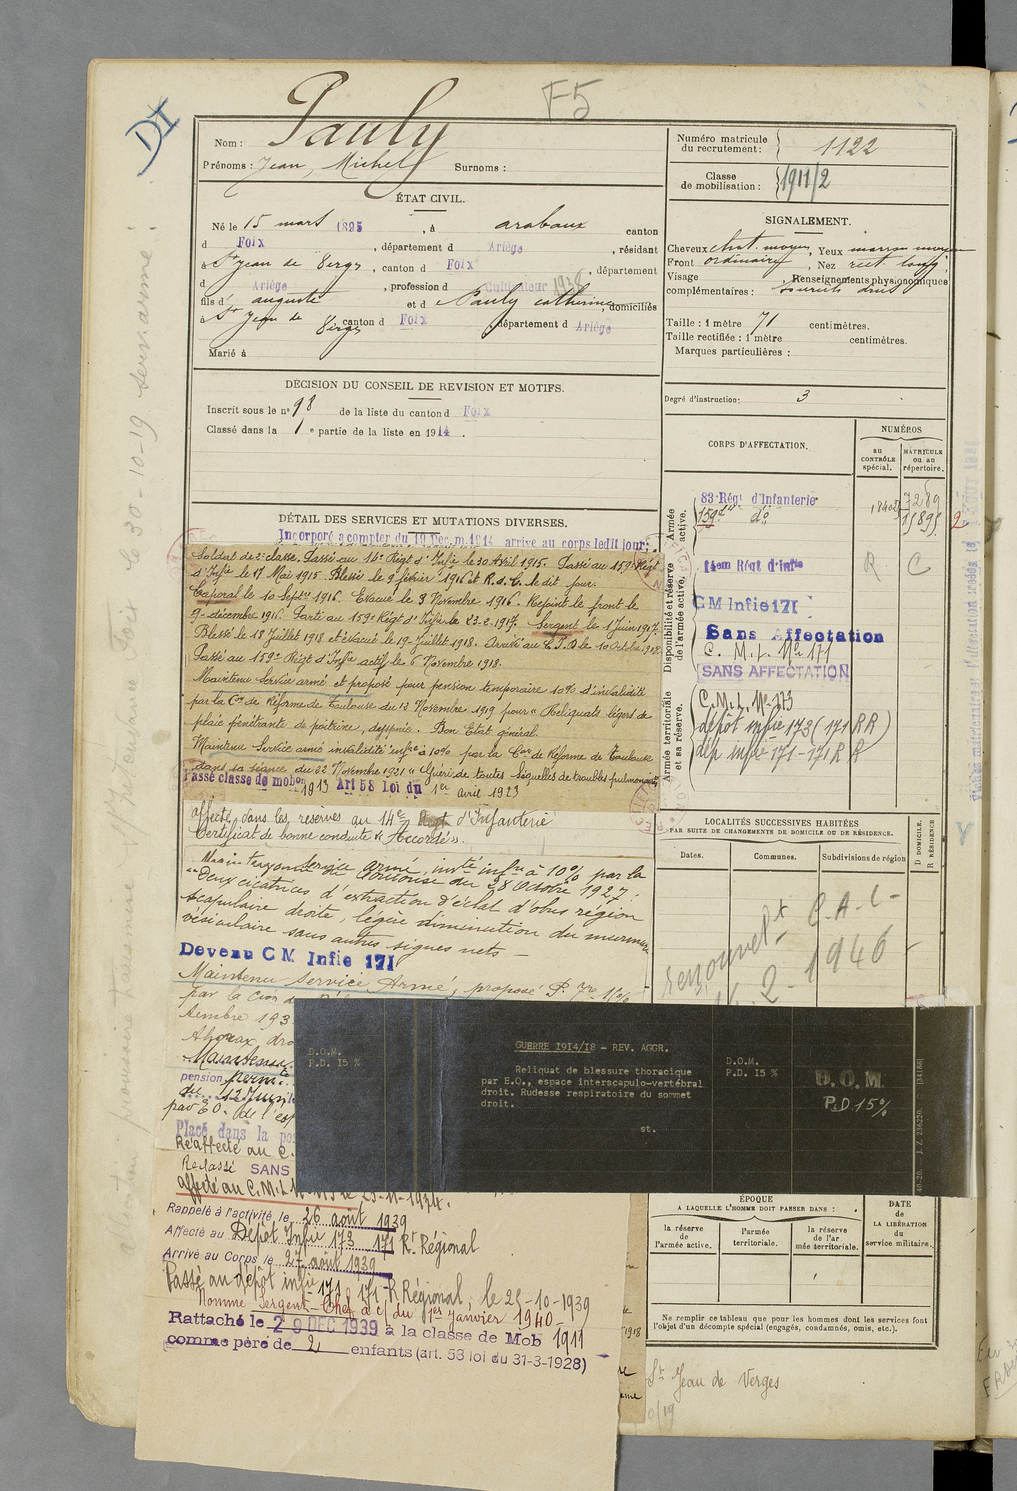 F5
DI
Nom : Pauly
Prénoms : Jean, Michel Surnoms :
Numéro matricule du recrutement : 1122
Classe de mobilisation : 1911/2
ÉTAT CIVIL.
Né le 15 mars 1895, à arabaux canton
d Foix, département d Ariège, résidant
à St Jean de Verges, canton d Foix, département
d Ariège, profession d Cultivateur 1936
fils d' auguste et d Pauly catherine, domiciliés
à St Jean de Verges canton d Foix, département d Ariège
Marié à
SIGNALEMENT.
Cheveux chat. moyen, Yeux marron moyen
Front ordinaire, Nez rect. long
Visage Renseignements physionomiques
complémentaires : sourcils droits
Taille : 1 mètre 71 centimètres.
Taille rectifiée : 1 mètre centimètres.
Marques particulières :
Degré d'instruction : 3
DÉCISION DU CONSEIL DE REVISION ET MOTIFS.
Inscrit sous le n° 98 de la liste du canton d Foix
Classé dans la 1e partie de la liste en 1914.
DÉTAIL DES SERVICES ET MUTATIONS DIVERSES.
Incorporé à compter du 19 Décem. 1914 arrivé au corps ledit jour;
Soldat de 2e classe. Passé au 14e Régt d'Infie le 30 Avril 1915. Passé au 159e Régt
d'Infie le 17 Mai 1915. Blessé le 9 février 1916 et R. d. C. le dit jour.
Caporal le 10 Septre 1916. Evacué le 3 Novembre 1916. Rejoint le front le
9 décembre 1916. Parti au 159e Régt d'Infie le 23-2-1917. Sergent le 1 Juin 1917.
Blessé le 18 Juillet 1918 et évacué le 19 Juillet 1918. Arrivé au C.I.D. le 10 Octobre 1918.
Passé au 159e Régt d'Infie actif le 6 Novembre 1918.
Maintenu Service armé et proposé pour pension temporaire 10% d'invalidité
par la Con de Réforme de Toulouse du 12 Novembre 1919 pour « Reliquats légers de
plaie pénétrante de poitrine, dyspnée. Bon Etat général.
Maintenu Service armé invalidité infre à 10% par la Con de Réforme de Toulouse
dans sa séance du 22 Novembre 1921 « Guéri de toutes séquelles de troubles pulmonaires
Passé classe de mobon 1913 Art 58 Loi du 1er avril 1923
affecté dans les réserves au 14e Régt d'Infanterie
Certificat de bonne conduite « Accordé ».
Maintenu service armé, invté infre à 10% par la
Toulouse du 28 Octobre 1927.
« Deux cicatrices d'extraction d'éclat d'obus région
scapulaire droite, légère diminution du murmure
vésiculaire sans autres signes nets —
Devenu CM Infie 171
Maintenu Service Armé, proposé P. Tre 10%
par la Con de
tembre 193
thorax dro
Maintenu
pension perm.te
du 12 Juin
par E.O. de l'esp
Placé dans la po
Réaffecté au C.
Reclassé SANS
affecté au C.M.I. N° 173 le 23-11-1934.
Rappelé à l'activité le 26 août 1939
Affecté au Dépôt Infie 173 171 Rt Régional
Arrivé au Corps le 27 août 1939
Passé au dépôt infie 171, 171 R Régional, le 25-10-1939
Nommé Sergent-Chef à c/ du 1er janvier 1940
Rattaché le 29 DEC 1939 à la classe de Mob 1911
comme père de 2 enfants (art. 58 loi du 31-3-1928)
CORPS D'AFFECTATION.
NUMÉROS
au CONTRÔLE spécial.
MATRICULE ou au répertoire.
Armée active.
83 Régt d'Infanterie 7289
159e do 18402 15895
Disponibilité et réserve de l'armée active.
14em Régt d'Infie R C
CM Infie 171
Sans Affectation
C. M. I. No 171
SANS AFFECTATION
Armée territoriale et sa réserve.
C.M.I. No 173
dépôt infie 173 (171 RR)
dép infie 171-171 RR
LOCALITÉS SUCCESSIVES HABITÉES
PAR SUITE DE CHANGEMENTS DE DOMICILE OU DE RÉSIDENCE.
Dates. Communes. Subdivisions de région
D DOMICILE.
R RÉSIDENCE
renouvelt C.A.C-
2-1946
D.O.M.
P.D. 15 %
GUERRE 1914/18 - REV. AGGR.
Reliquat de blessure thoracique
par E.O., espace interscapulo-vertébral
droit. Rudesse respiratoire du sommet
droit.
st.
D.O.M.
P.D. 15 %
D.O.M
P.D 15%
ÉPOQUE
A LAQUELLE L'HOMME DOIT PASSER DANS :
la réserve de l'armée active.
l'armée territoriale.
la réserve de l'armée territoriale.
DATE de LA LIBÉRATION du service militaire.
Ne remplir ce tableau que pour les hommes dont les services font
l'objet d'un décompte spécial (engagés, condamnés, omis, etc.).
St Jean de Verges